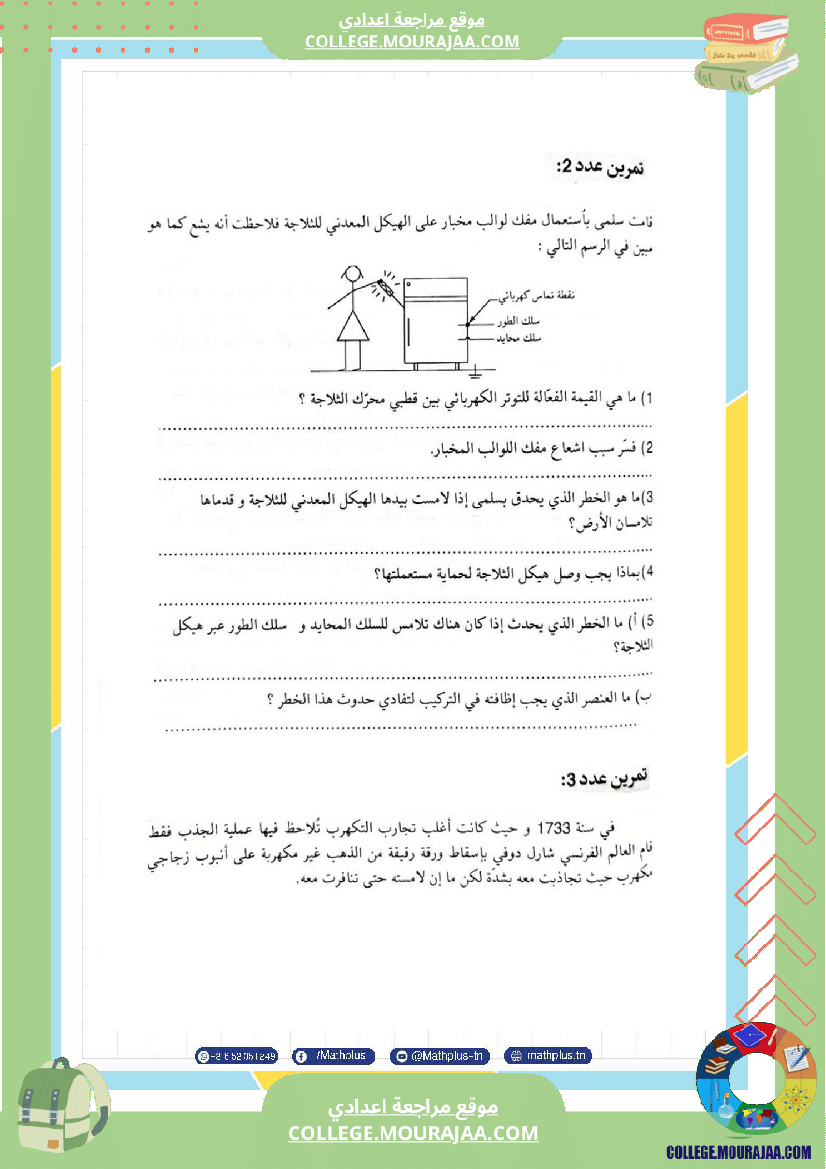 موقع مراجعة اعدادي
COLLEGE.MOURAJAA.COM
تمرين عدد 2:
قامت سلمى بأستعمال مفك لوالب مخبار على الهيكل المعدني للثلاجة فلاحظت أنه يشع كما هو
مبين في الرسم التالي :
نقطة تماس كهربائي
سلك الطور
سلك محايد
1) ما هي القيمة الفعّالة للتوتر الكهربائي بين قطبي محرّك الثلاجة ؟
2) فسّر سبب اشعاع مفك اللوالب المخبار.
3)ما هو الخطر الذي يحدق بسلمى إذا لامست بيدها الهيكل المعدني للثلاجة و قدماها
تلامسان الأرض؟
4)بماذا يجب وصل هيكل الثلاجة لحماية مستعملتها؟
5) أ) ما الخطر الذي يحدث إذا كان هناك تلامس للسلك المحايد و سلك الطور عبر هيكل
الثلاجة؟
ب) ما العنصر الذي يجب إظافته في التركيب لتفادي حدوث هذا الخطر ؟
تمرين عدد 3:
في سنة 1733 و حيث كانت أغلب تجارب التكهرب تُلاحظ فيها عملية الجذب فقط
قام العالم الفرنسي شارل دوفي بإسقاط ورقة رقيقة من الذهب غير مكهربة على أنبوب زجاجي
مكهرب حيث تجاذبت معه بشدّة لكن ما إن لامسته حتى تنافرت معه.
/Mathplus
@Mathplus-tn
mathplus.tn
موقع مراجعة اعدادي
COLLEGE.MOURAJAA.COM
COLLEGE.MOURAJAA.COM